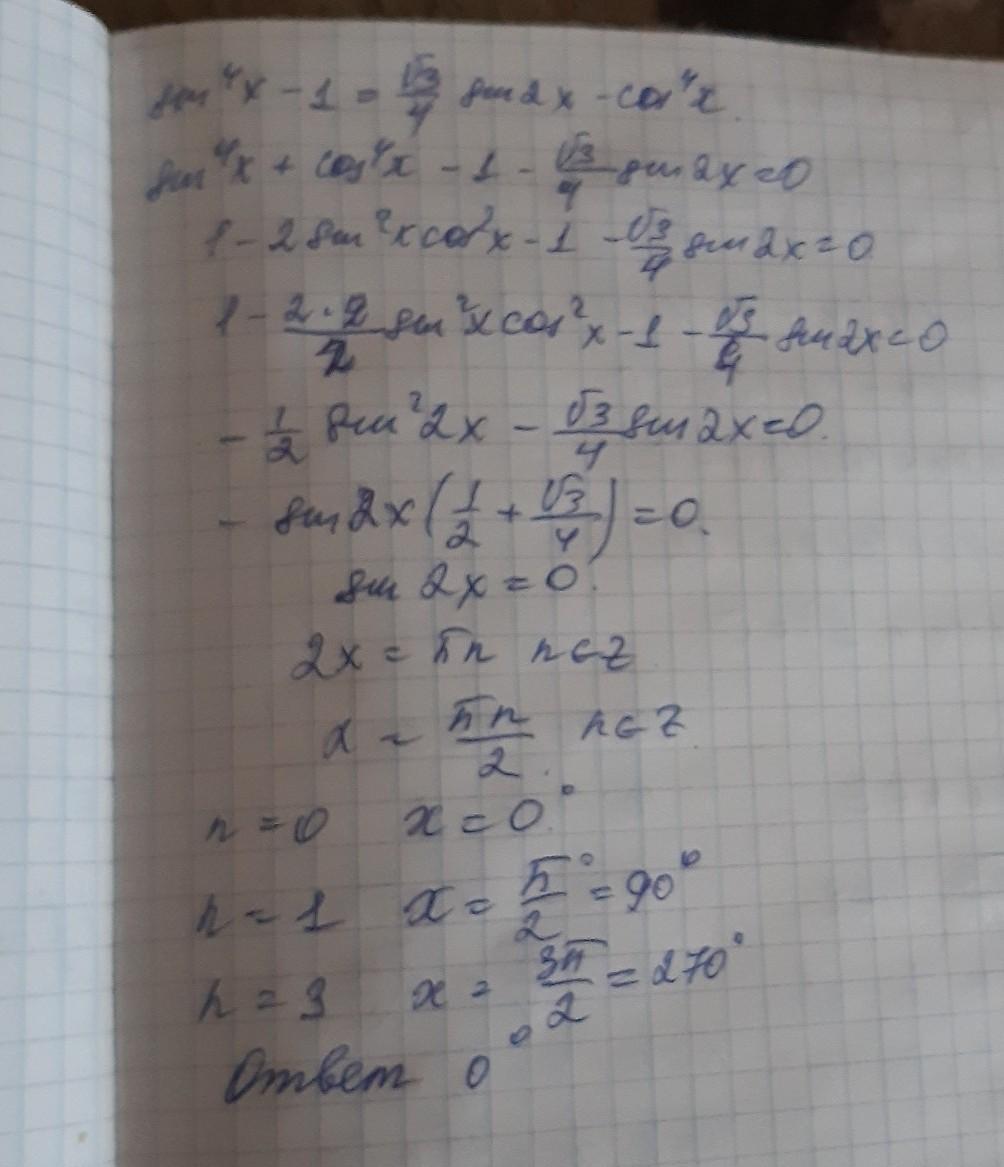 sin⁴x - 1 = √3/4 sin2x - cos⁴x.
sin⁴x + cos⁴x - 1 - √3/4 sin2x = 0
1 - 2sin²xcos²x - 1 - √3/4 sin2x = 0
1 - 2·2/2 sin²xcos²x - 1 - √3/4 sin2x = 0
- 1/2 sin²2x - √3/4 sin2x = 0.
- sin2x(1/2 + √3/4) = 0.
sin 2x = 0.
2x = πn n∈Z
x = πn/2 n∈Z
n = 0 x = 0°
n = 1 x = π/2° = 90°
n = 3 x = 3π/2 = 270°
Ответ 0°